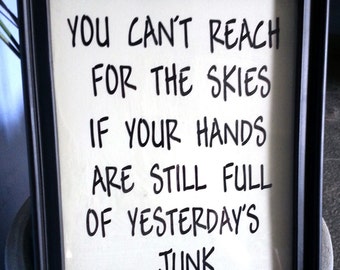 YOU CAN'T REACH
FOR THE SKIES
IF YOUR HANDS
ARE STILL FULL
OF YESTERDAY'S
JUNK